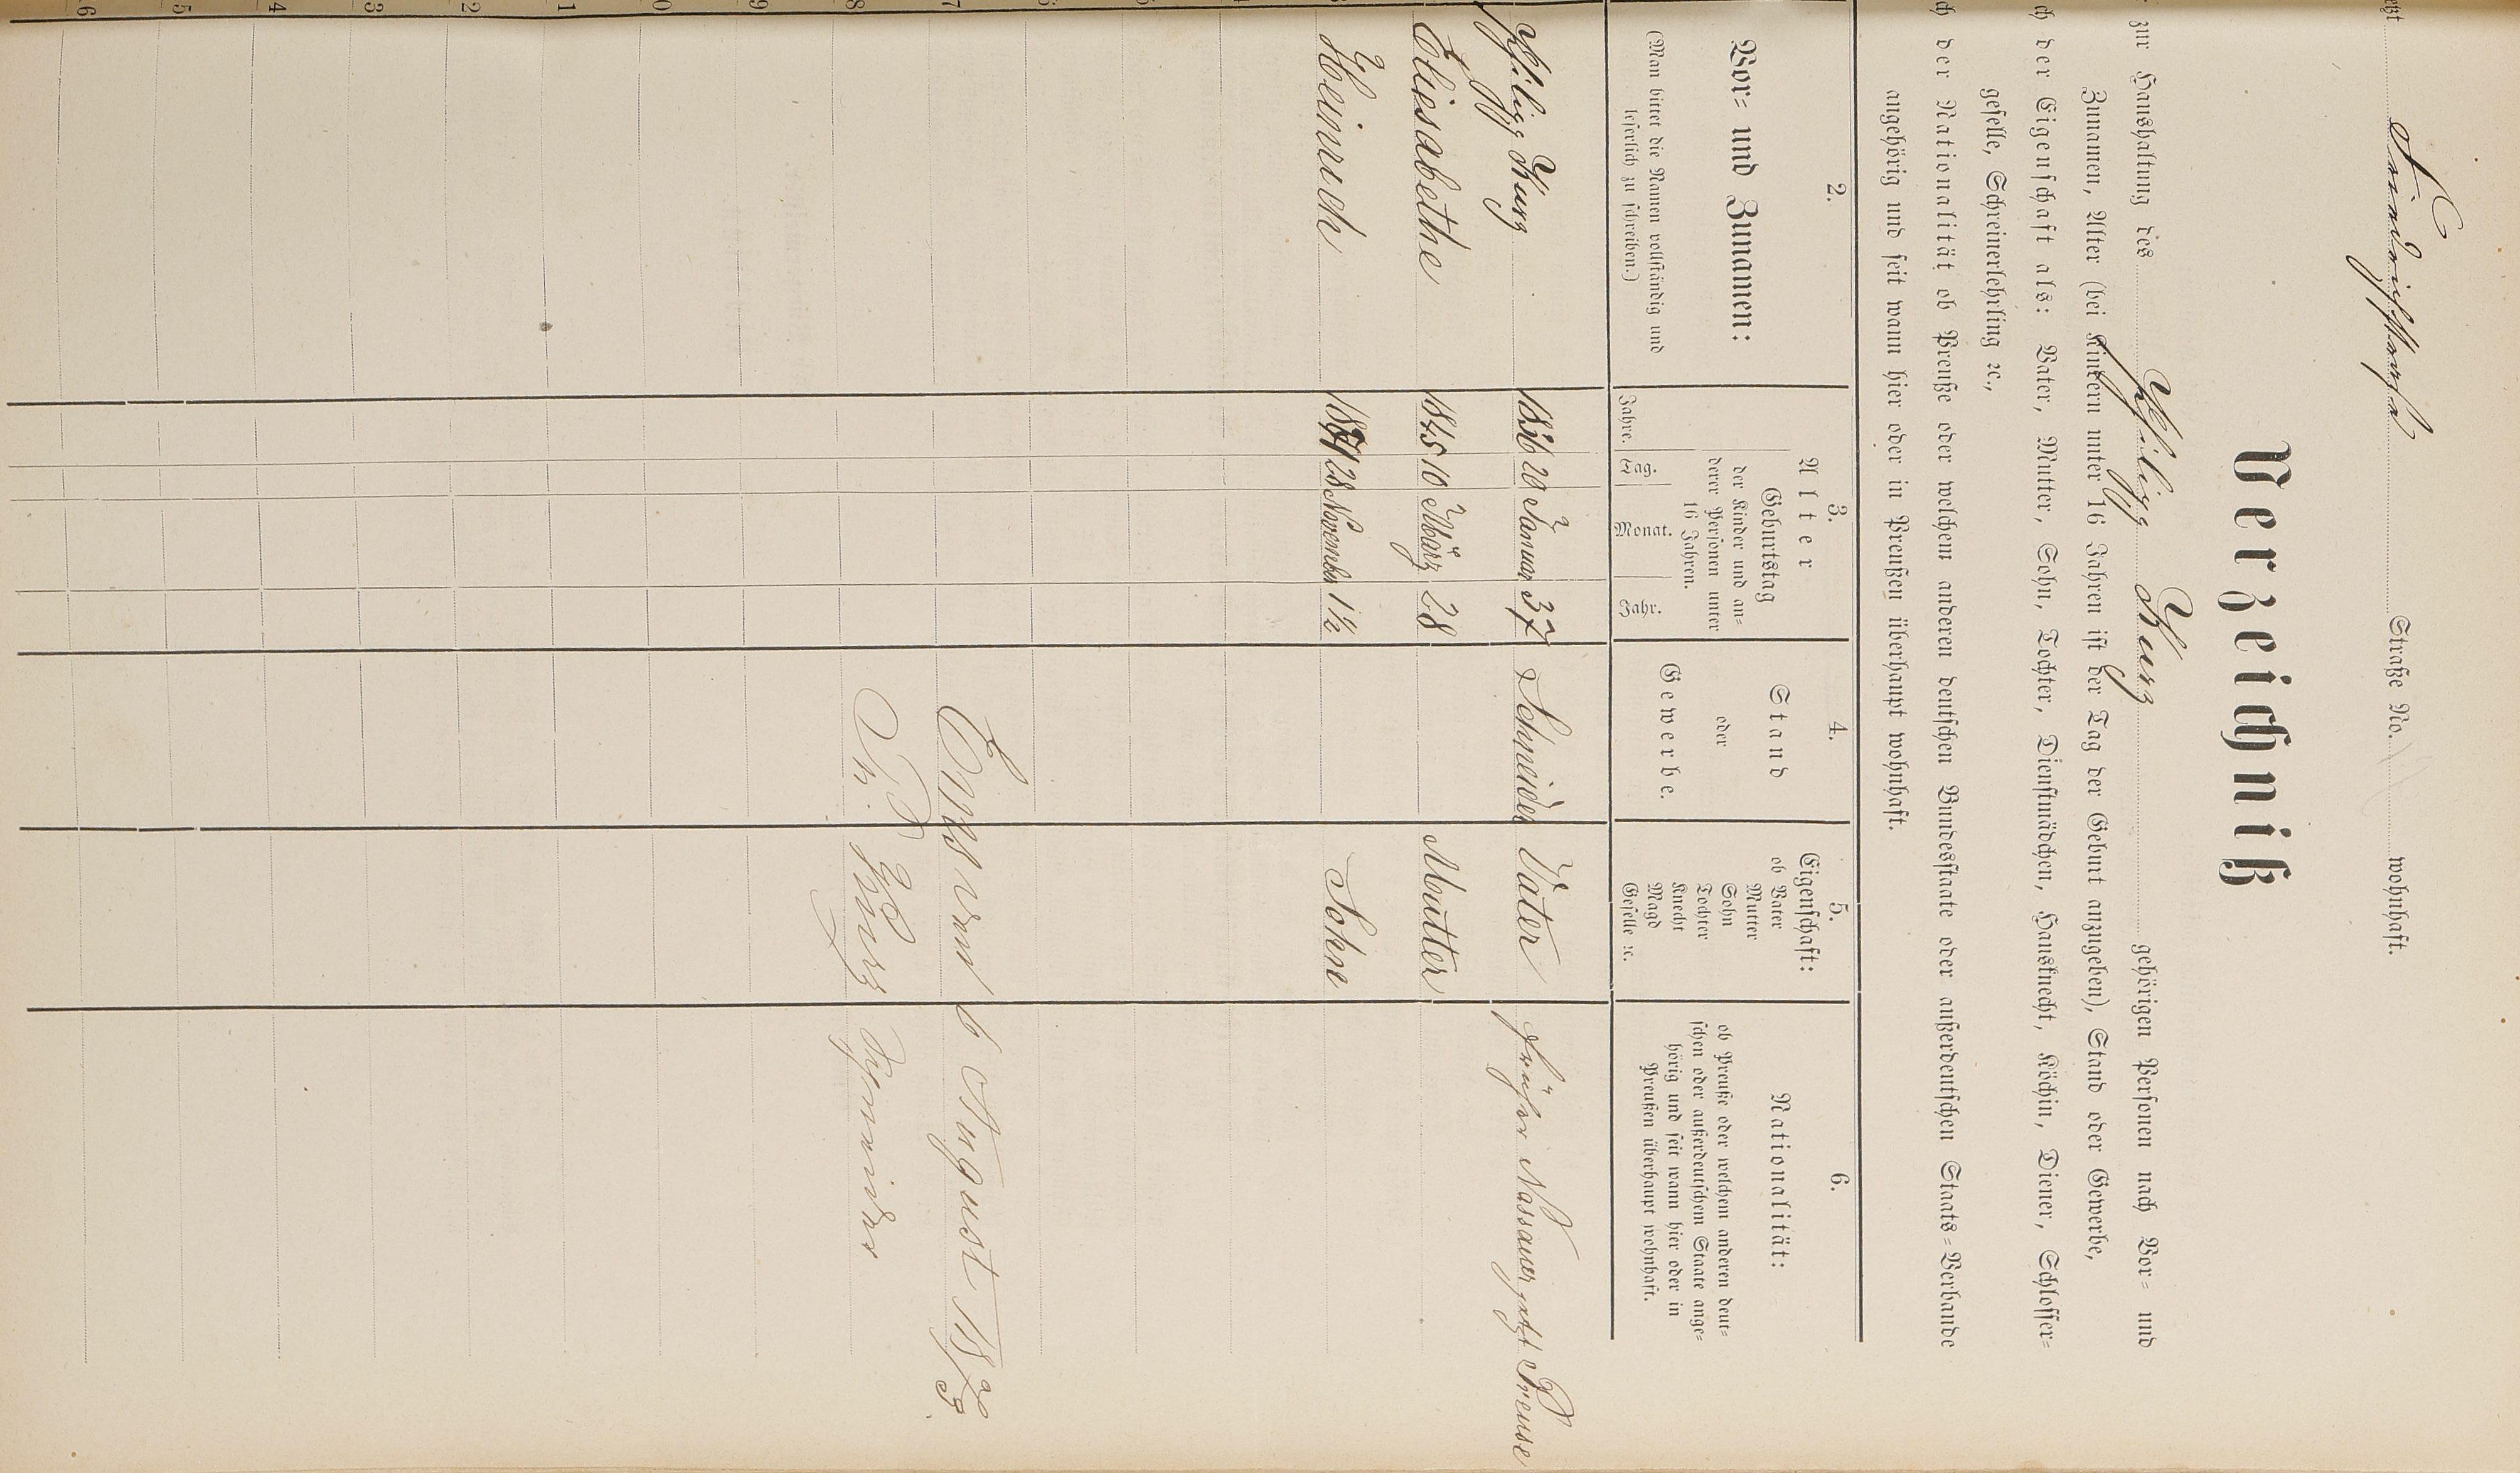 Straße No. wohnhaft.
Verzeichniß
zur Haushaltung des Philipp Kurz gehörigen Personen nach Vor- und
Zunamen, Alter (bei Kindern unter 16 Jahren ist der Tag der Geburt anzugeben), Stand oder Gewerbe,
der Eigenschaft als: Vater, Mutter, Sohn, Tochter, Dienstmädchen, Hausknecht, Köchin, Diener, Schlosser-
geselle, Schreinerlehrling ꝛc.,
der Nationalität ob Preuße oder welchem anderen deutschen Bundesstaate oder außerdeutschen Staats-Verbande
angehörig und seit wann hier oder in Preußen überhaupt wohnhaft.
2.
Vor- und Zunamen:
(Man bittet die Namen vollständig und
leserlich zu schreiben.)
3.
Alter
Geburtstag
der Kinder und an-
derer Personen unter
16 Jahren.
Jahre. Tag. Monat. Jahr.
4.
Stand
oder
Gewerbe.
5.
Eigenschaft:
ob Vater
Mutter
Sohn
Tochter
Knecht
Magd
Geselle ꝛc.
6.
Nationalität:
ob Preuße oder welchem anderen deut-
schen oder außerdeutschem Staate ange-
hörig und seit wann hier oder in
Preußen überhaupt wohnhaft.
Philipp Kurz 1836 20 Januar 37 Schneider Vater früher Nassauer jetzt Preuse
Eliesabethe 1845 10 März 28 Mutter
3 Heinrich 1871 28 November 1½ Sohn
4
5
6
7 Ems den 6 August 1873.
8 Ph. Kurz Schneider
9
0
1
2
3
4
5
6